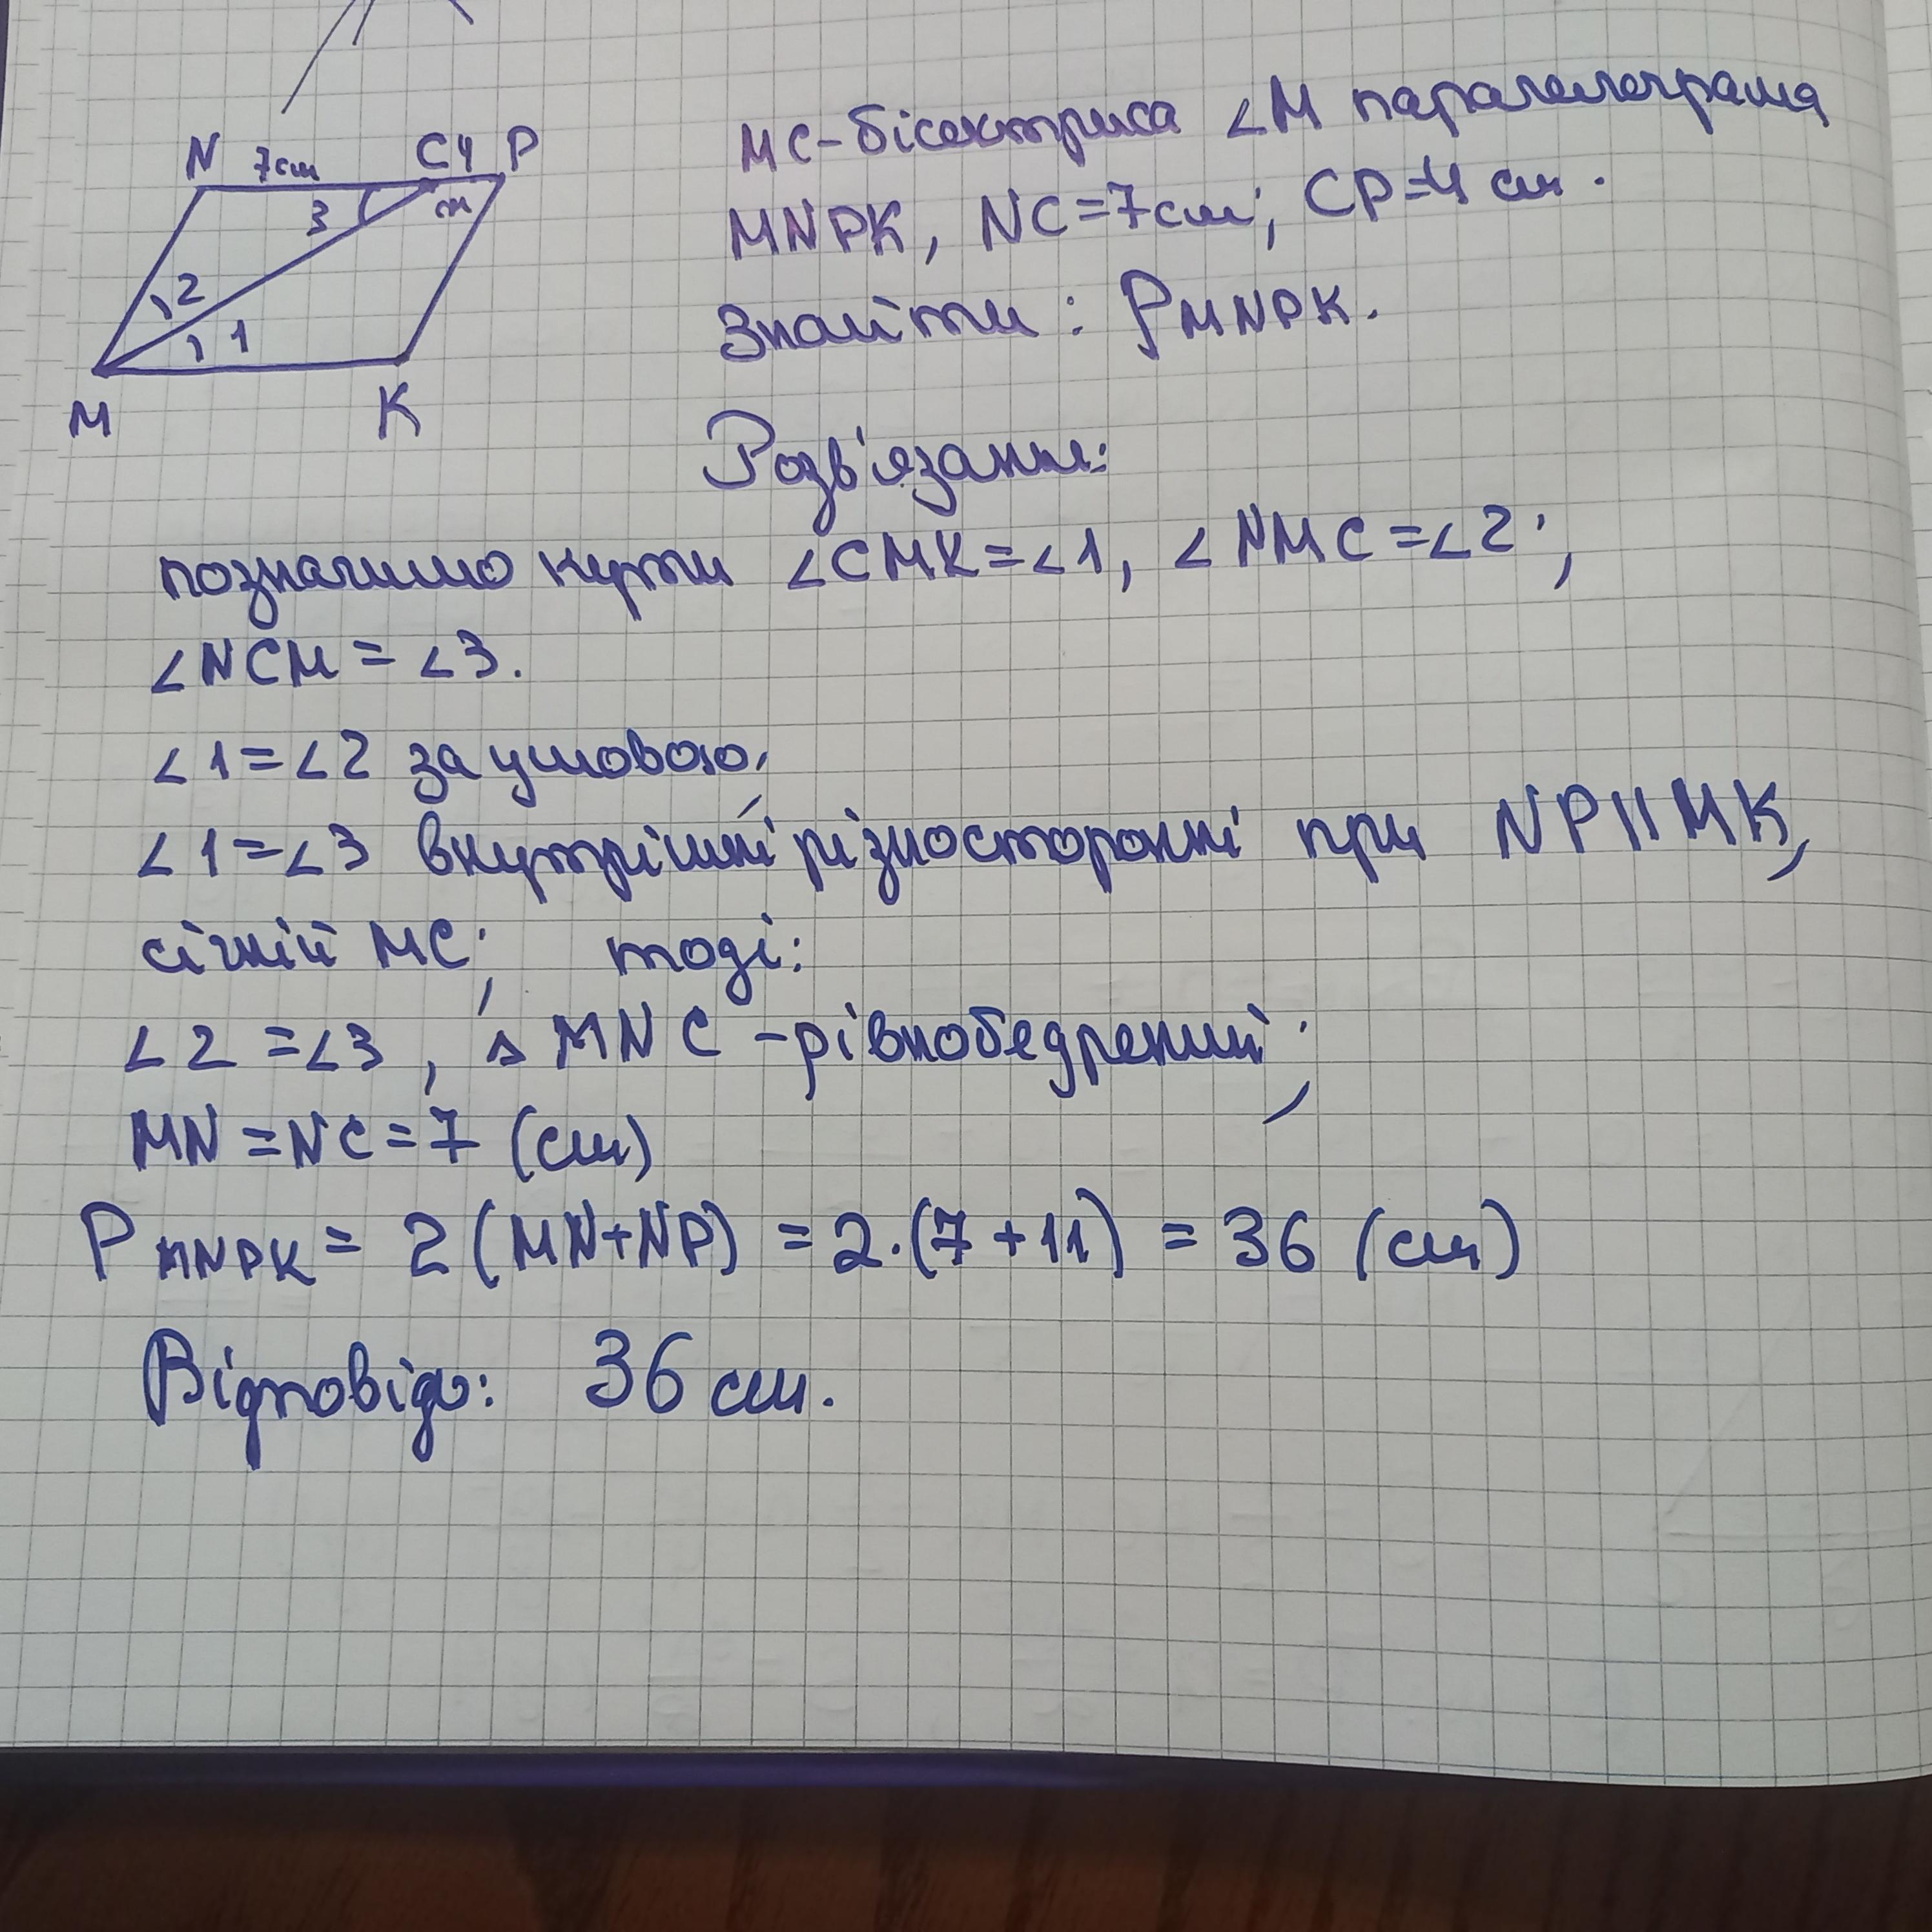 N 7см C 4 P
3 см
2
1
M K
MC-бісектриса ∠M паралелограма
MNPK, NC=7см; CP=4 см.
Знайти: PMNPK.
Розв'язання:
позначимо кути ∠CMK=∠1, ∠NMC=∠2;
∠NCM=∠3.
∠1=∠2 за умовою.
∠1=∠3 внутрішні різносторонні при NP||MK,
січній MC; тоді:
∠2=∠3, △MNC-рівнобедрений;
MN=NC=7 (см)
PMNPK=2(MN+NP)=2·(7+11)=36 (см)
Відповідь: 36 см.